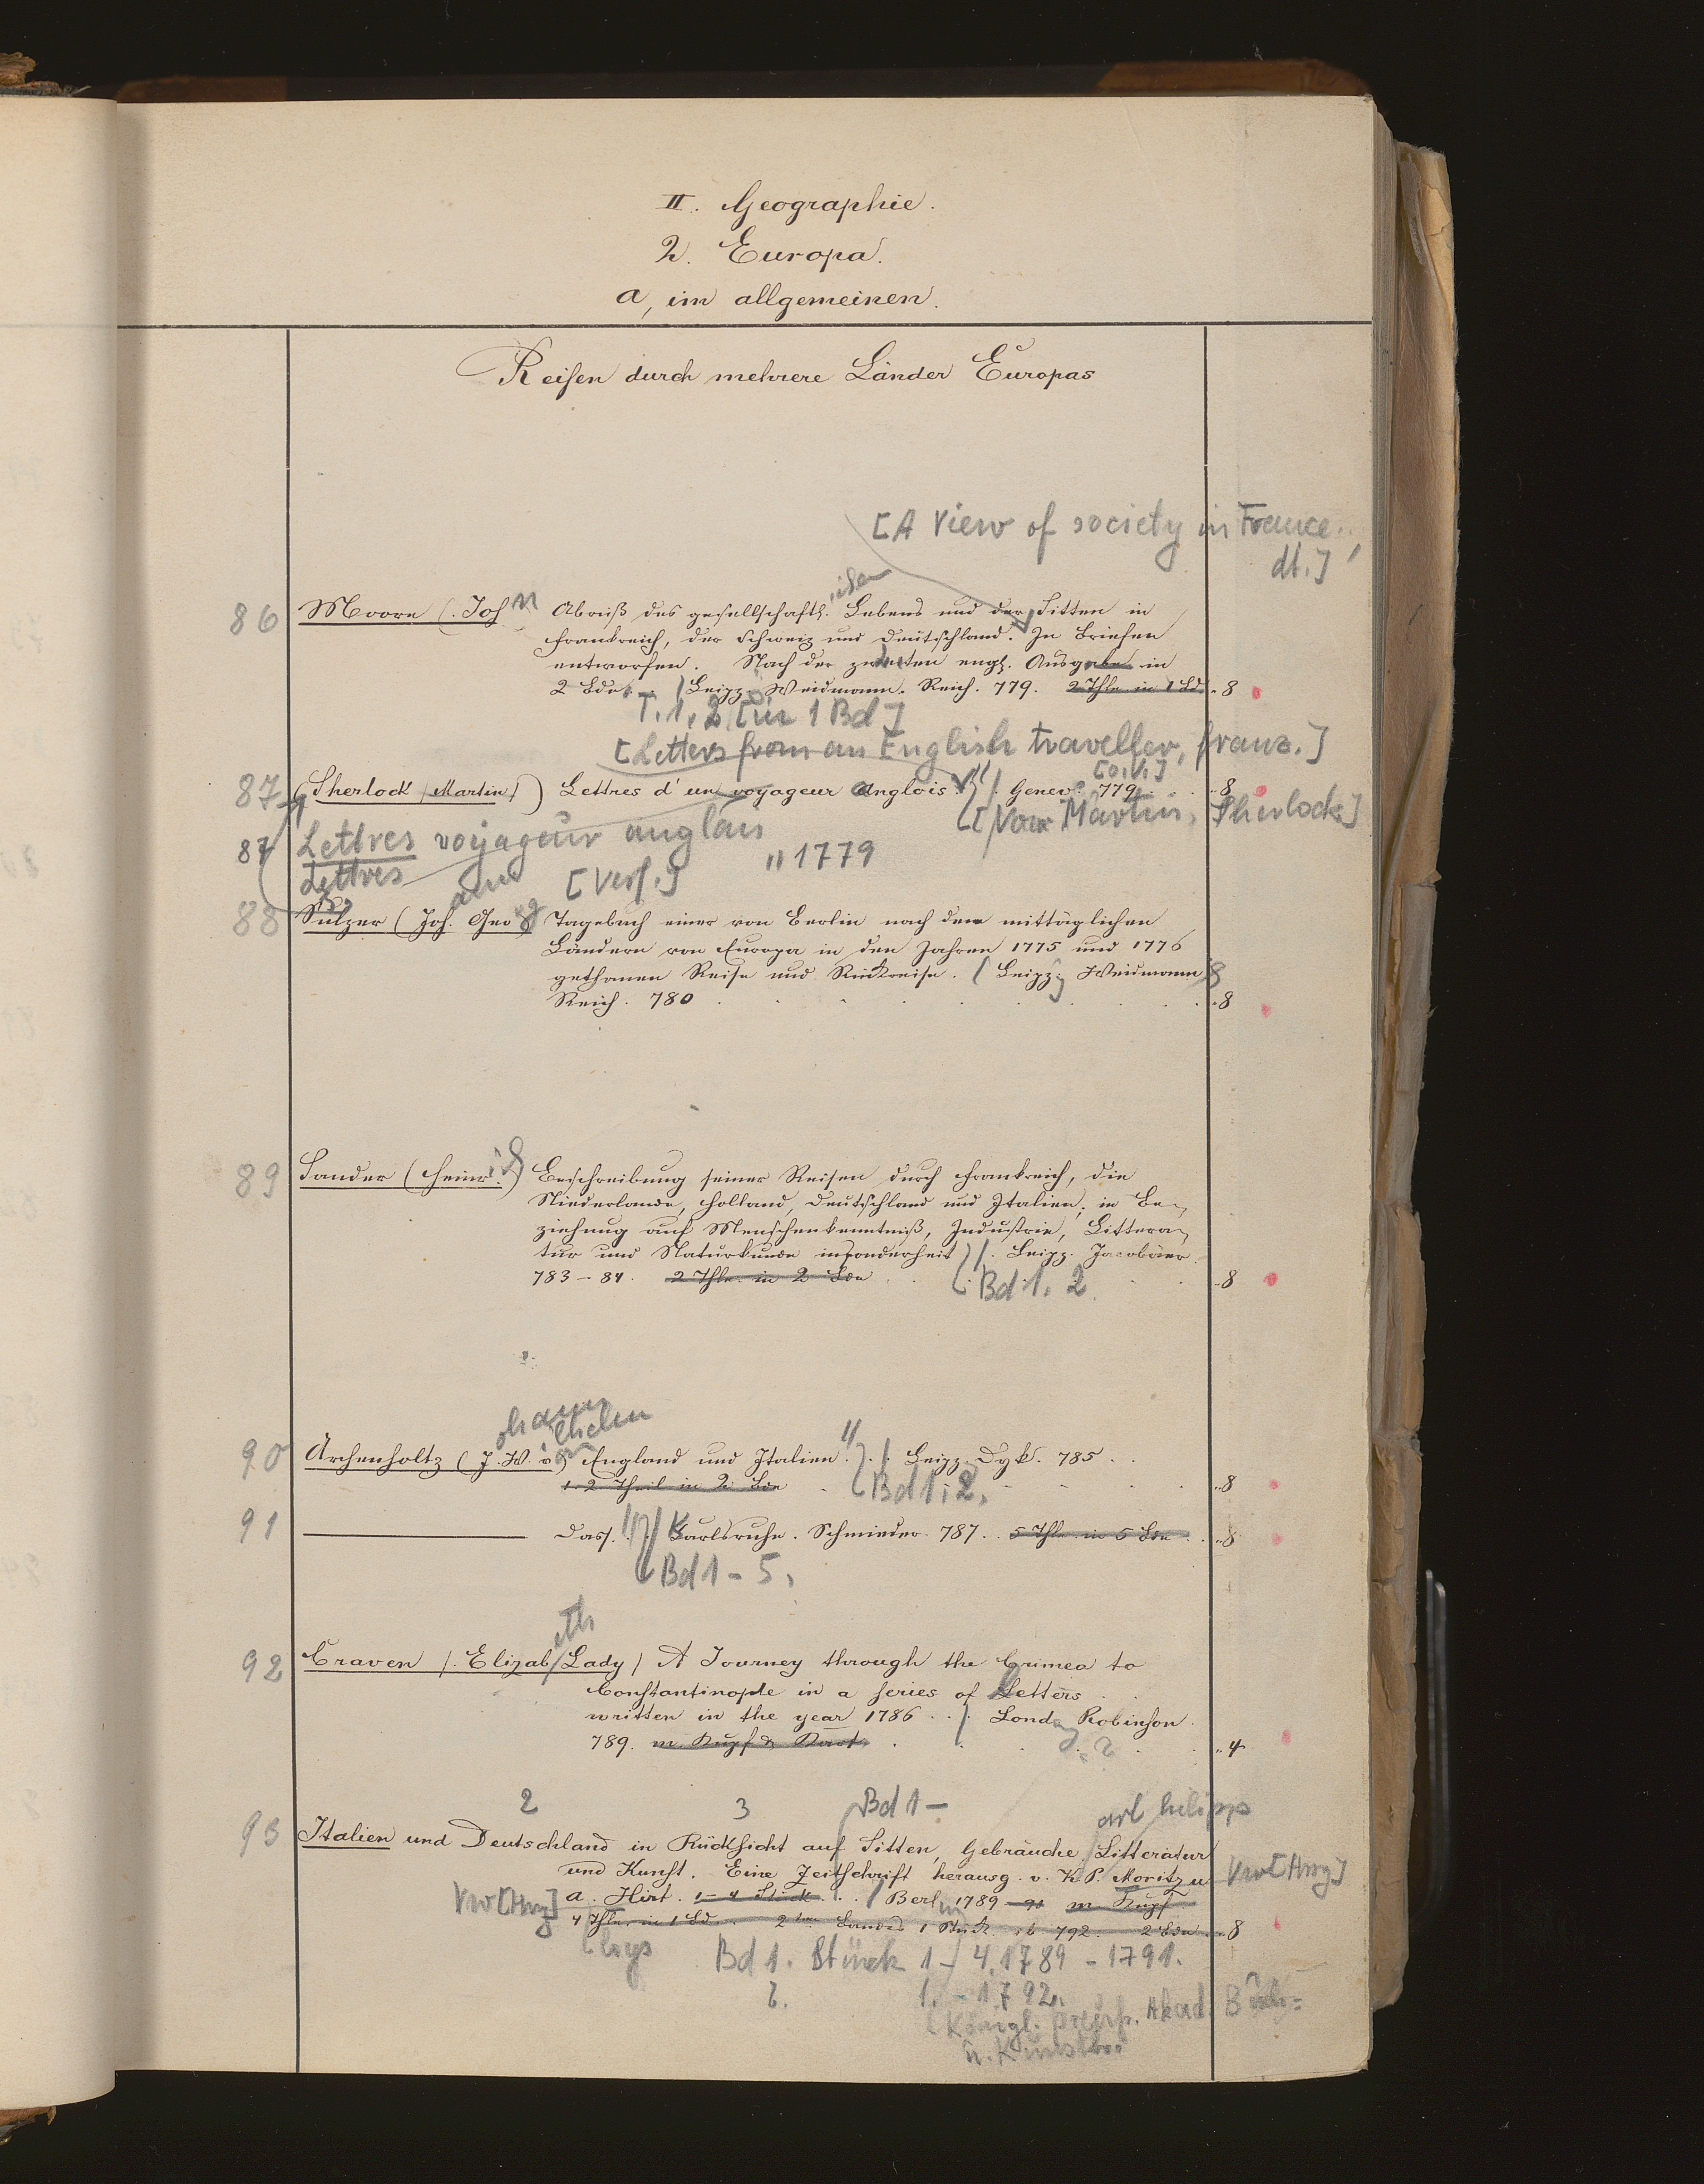 II. Geographie.
2. Europa.
a, im allgemeinen.
Reisen durch mehrere Länder Europas
[A View of society in France..,
dt.]
86 Moore (. John Abriß des gesellschaftl. Lebens und der Sitten in
Frankreich, der Schweiz und Deutschland. In Briefen
entworfen. Nach der zweiten engl. Ausgabe in
2 Bden. Leipz. Weidmann. Reich. 779. 2 Thle in 1 Bd. 8
T. 1. 2 [in 1 Bd]
[Letters from an English traveller, franz.]
[o.V.]
87 (Sherlock (Martin)) Lettres d'un voyageur Anglois. Genev. 779. 8
[Von Martin Sherlock]
87 Lettres voyageur anglais
Lettres [Verf.] 1779
88 Sulzer (Joh. Georg Tagebuch einer von Berlin nach den mittäglichen
Ländern von Europa in den Jahren 1775 und 1776
gethanen Reise und Rückreise. (Leipz. Weidmann
Reich. 780 8
89 Sander (Heinrich) Beschreibung seiner Reisen durch Frankreich, die
Niederlande, Holland, Deutschland und Italien; in Be-
ziehung auf Menschenkenntniß, Industrie, Littera-
tur und Naturkunde insonderheit). Leipz. Jacobäer.
783-84. 2 Thle. in 2 Bde 8
Bd 1. 2.
ohann ilhelm
90 Archenholtz (J. W. von England und Italien. Leipz. Dyk. 785.
1. 2 Theil in 2 Bde 8
Bd 1. 2.
91 Dass. Karlsruhe. Schmieder. 787. 5 Thle in 5 Bde 8
Bd 1 - 5.
eth
92 Craven (. Elizab. Lady) A Journey through the Crimea to
Constantinople in a series of Letters
written in the year 1786.. Lond. Robinson.
789. m Kupf & Kart. 4
2 3 Bd 1 - arl hilipp
93 Italien und Deutschland in Rücksicht auf Sitten, Gebräuche, Litteratur
und Kunst. Eine Zeitschrift herausg. v. K. P. Moritz u. VW [Hrsg]
VW [Hrsg] a. Hirt. 1-4 Stück. Berlin 1789-91 m Kupf.
4 Thle. in 1 Bd. 2ten Bandes 1 Stück. ib. 792. 2 Bde 8
Bd 1. Stück 1-4. 1789 - 1791.
2. 1. - 1792.
(Königl. Preuß. Akad. Buch=
u. Kunsth.